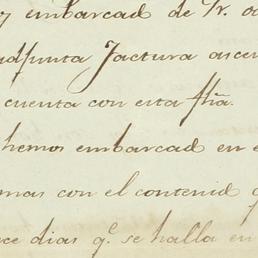 y embarcad de Sr. 
adjunta Factura ascen
cuenta con esta fha.
hemos embarcad en e
mas con el contenid q
ce dias q.e se halla en